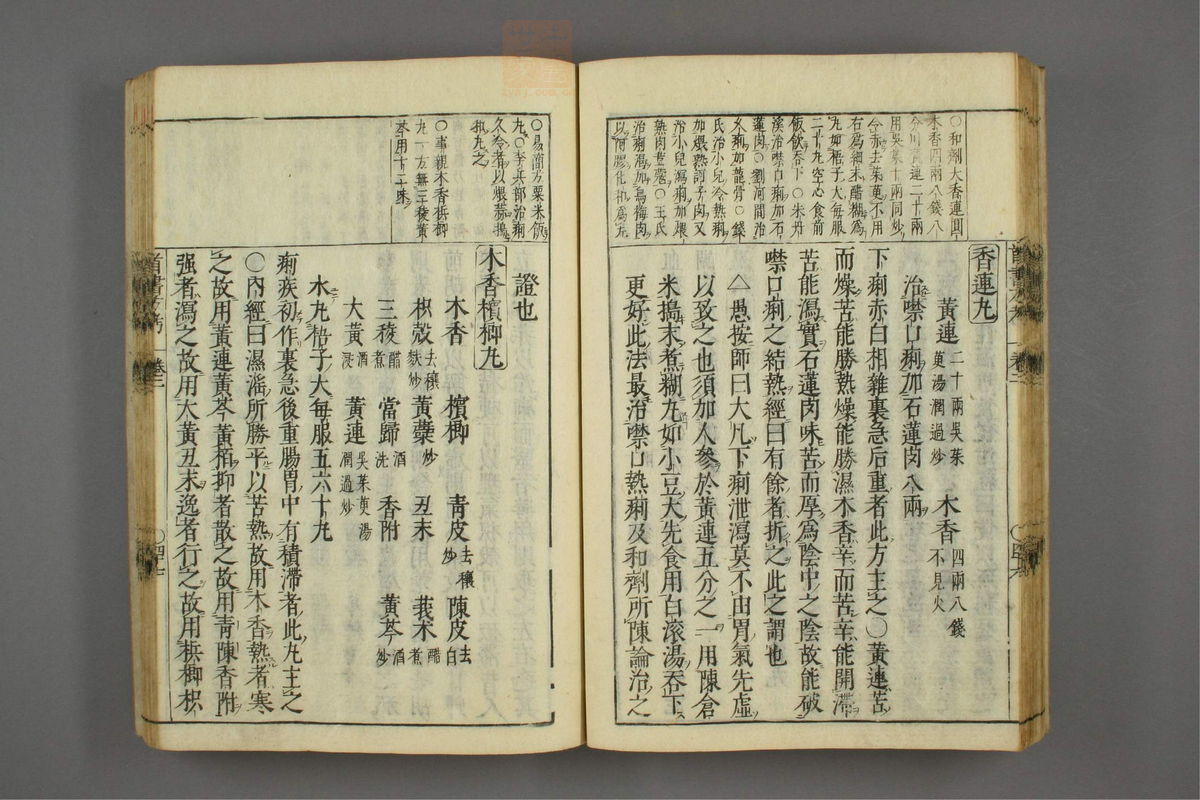 ○和劑大香連圓
木香四兩八錢八
分川黃連二十兩
用吳茱十兩同炒
令赤去茱萸不用
右爲細末醋糊爲
丸如梧子大每服
二十丸空心食前
飯飲吞下○朱丹
溪治噤口痢加石
蓮肉○劉河間治
久痢加龍骨○錢
氏治小兒冷熱痢
加煨熟訶子肉又
治小兒瀉痢加煨
熟肉荳蔻○王氏
治痢渴加烏梅肉
以阿膠化和爲丸
香連丸
黃連二十兩吳茱萸湯潤過炒 木香四兩八錢不見火
治噤口痢加石蓮肉八兩
下痢赤白相雜裏急后重者此方主之○黃連苦
而燥苦能勝熱燥能勝濕木香辛而苦辛能開滯
苦能瀉實石蓮肉味苦而厚爲陰中之陰故能破
噤口痢之結熱經曰有餘者折之此之謂也
△愚按師曰大凡下痢泄瀉莫不由胃氣先虛
以致之也須加人參於黃連五分之一用陳倉
米搗末煮糊丸如小豆大先食用白滾湯吞下
更好此法最治噤口熱痢及和劑所陳論治之
○易簡方粟米飯
丸○李兵部治痢
久冷者以煨蒜搗
和丸之
○事親木香梹榔
丸一方無三稜黃
芩用十二味
證也
木香檳榔丸
木香 檳榔 青皮去穰炒 陳皮去白
枳殼去穰麩炒 黃蘗炒 丑末 莪朮醋煮
三稜醋煮 當歸酒洗 香附 黃芩酒炒
大黃酒浸 黃連吳茱萸湯潤過炒
水丸梧子大每服五六十丸
痢疾初作裏急後重腸胃中有積滯者此丸主之
○內經曰濕滛所勝平以苦熱故用木香熱者寒
之故用黃連黃芩黃栢抑者散之故用青陳香附
强者瀉之故用大黃丑末逸者行之故用梹榔枳